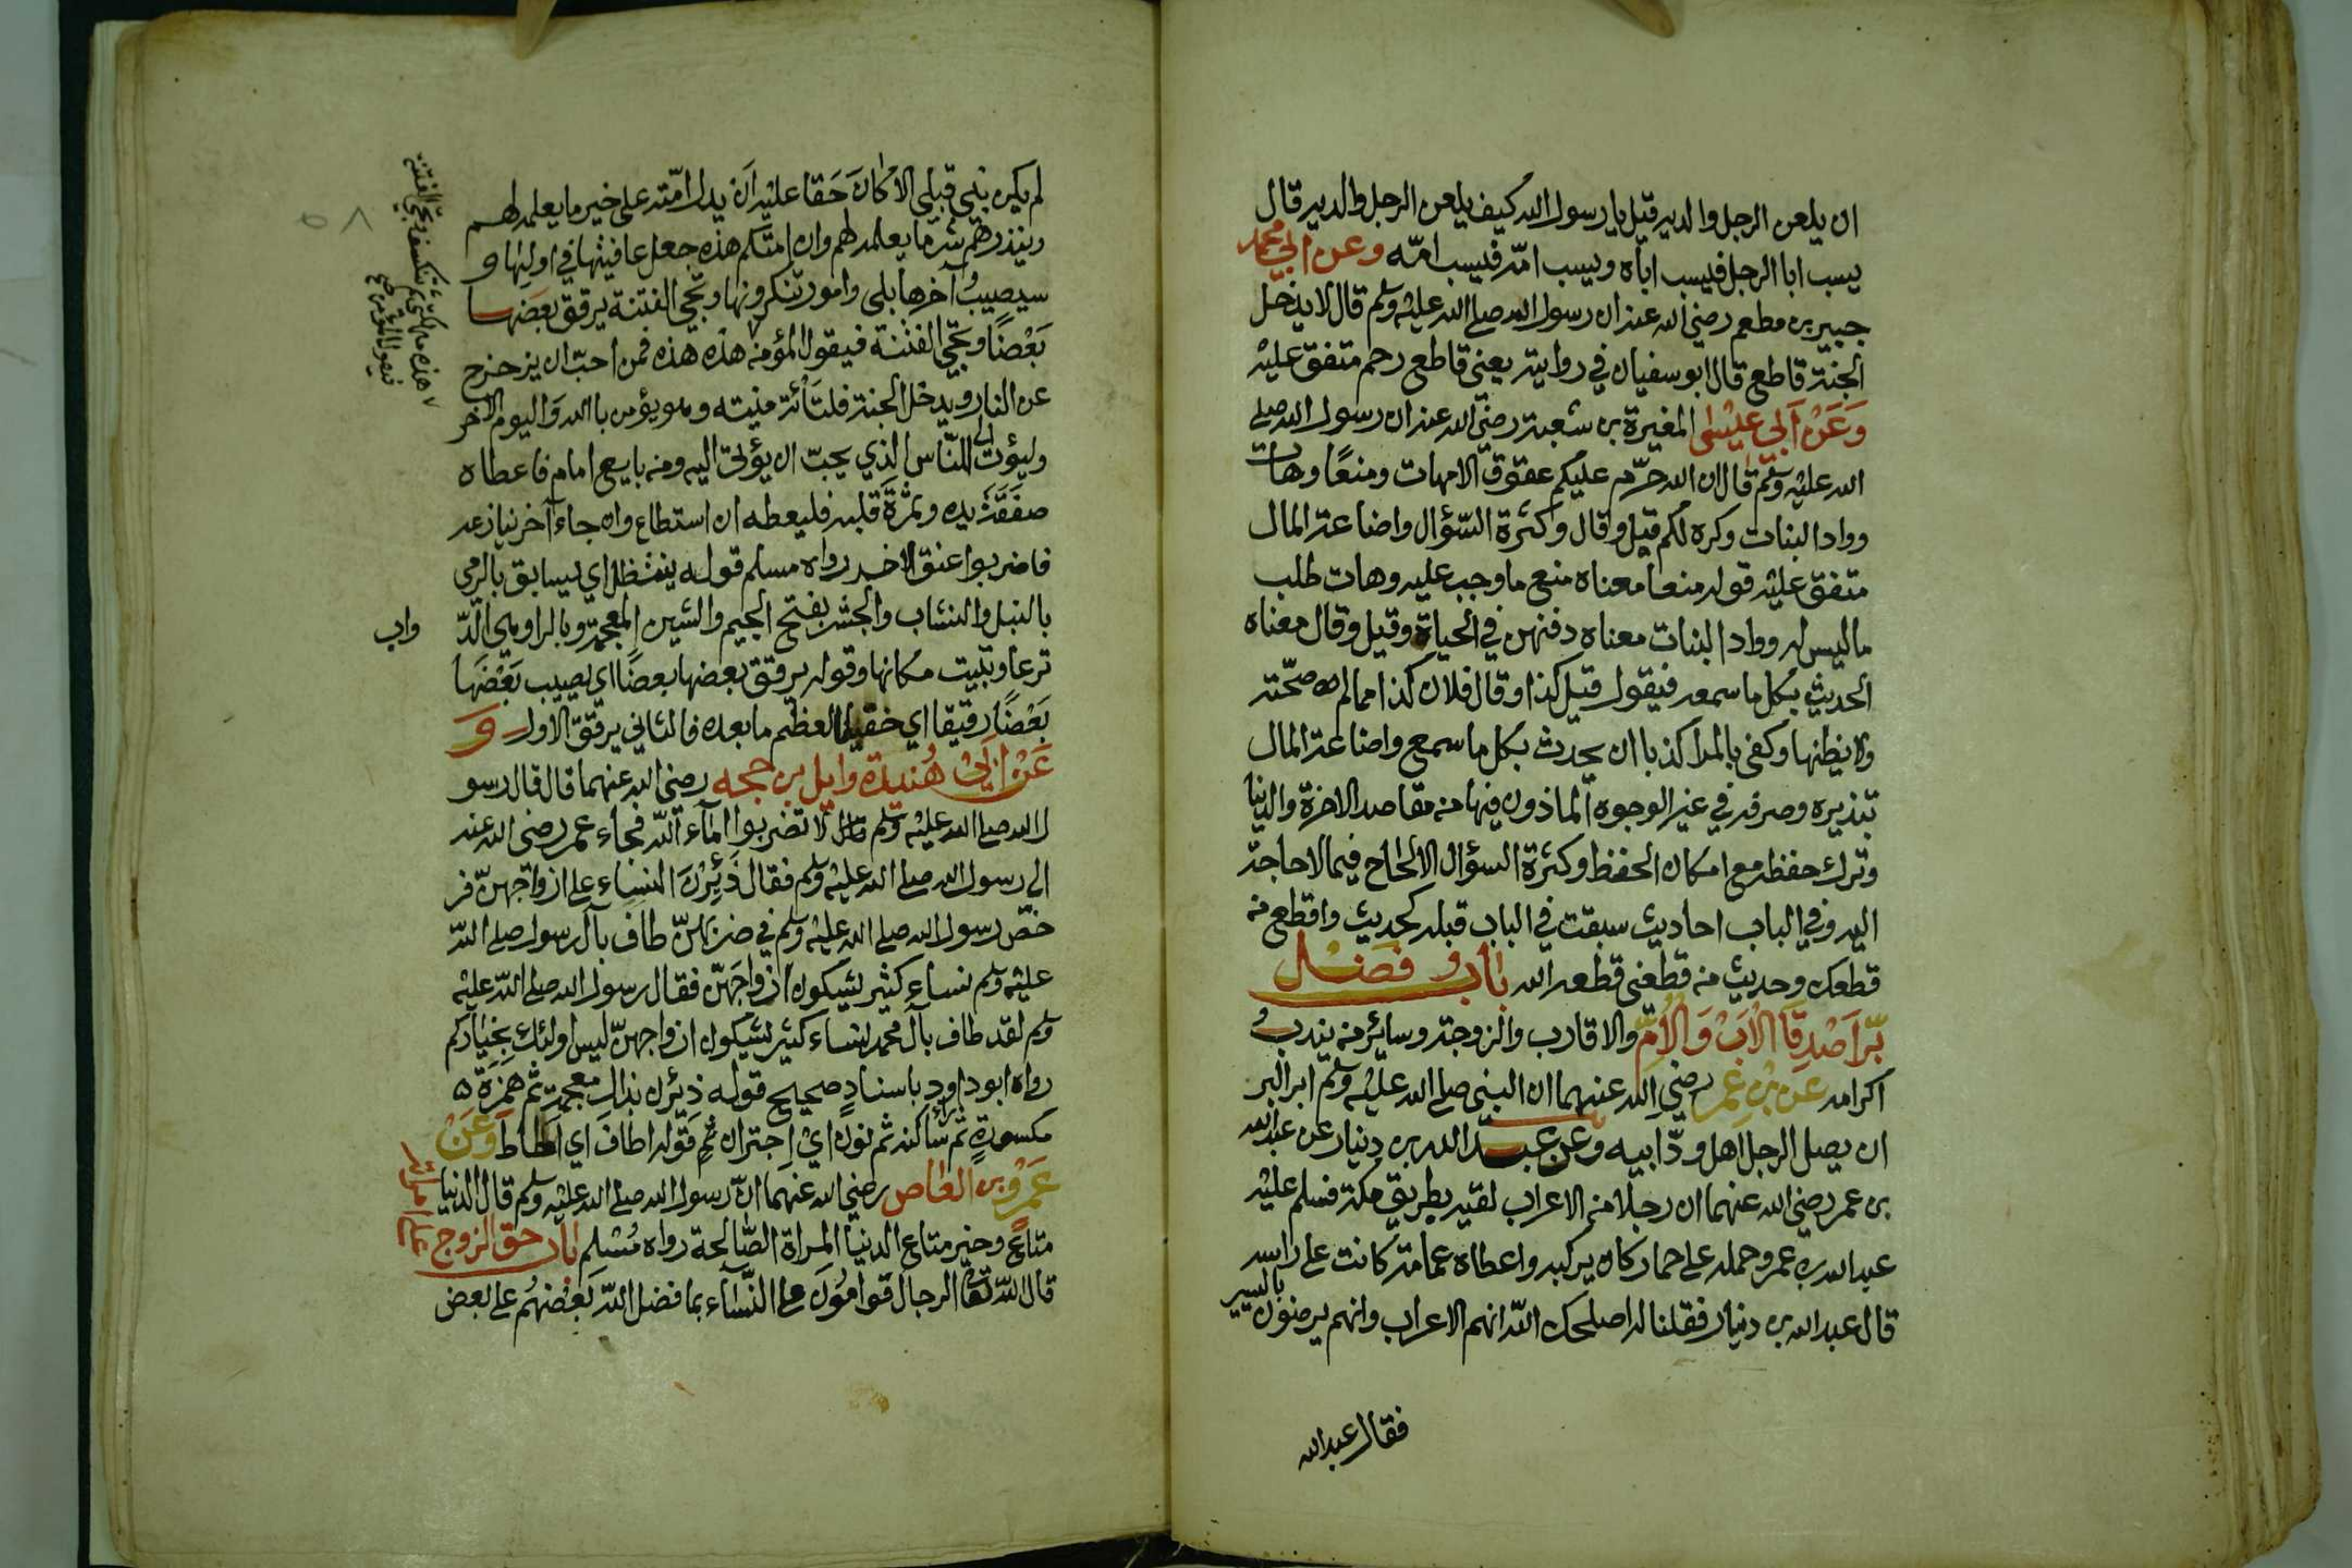 ان يلعن الرجل والديه قيل يا رسول الله كيف يلعن الرجل والديه قال
يسب ابا الرجل فيسب اباه ويسب امّه فيسب امّه وعن ابي محمد
جبير بن مطعم رضي الله عنه ان رسول الله صلى الله عليه وسلم قال لا يدخل
الجنة قاطع قال ابو سفيان في روايته يعني قاطع رحم متفق عليه
وَعَنْ اَبي عيسٰى المغيرة بن شعبة رضي الله عنه ان رسول الله صلى
الله عليه وسلم قال ان الله حرّم عليكم عقوق الامهات ومنعًا وهات
وواد البنات وكره لكم قيل وقال وكثرة السّؤال واضاعة المال
متفق عليه قوله منعا معناه منع ما وجب عليه وهات طلب
ما ليس له وواد البنات معناه دفنهن في الحياة وقيل وقال معناه
الحديث بكل ما سمعه فيقول قيل كذا وقال فلان كذا مما لم صحّته
ولا يظنها وكفى بالمرا كذبا ان يحدث بكل ما سمع واضاعة المال
تبذيره وصرفه في غير الوجوه الماذون فيها من مقاصد الاخرة والدنيا
وترك حفظه مع امكان الحفظ وكثرة السؤال الالحاح فيما لا حاجة
اليه وفي الباب احاديث سبقت في الباب قبله كحديث واقطع من
قطعك وحديث من قطعني قطعه الله باب فضل
برّ اَصْدِقَا الْاَبْ وَالْاُمّ والاقارب والزوجة وساير من يندب
اكرامه عن بن عمر رضي الله عنهما ان النبي صلى الله عليه وسلم ابر البر
ان يصل الرجل اهل ودّ ابيه وعن عبد الله بن دينار عن عبد الله
بن عمر رضي الله عنهما ان رجلا من الاعراب لقيه بطريق مكة فسلم عليه
عبد الله بن عمر وحمله على حمار كان يركبه واعطاه عمامة كانت على راسه
قال عبد الله بن دينار فقلنا له اصلحك الله انهم الاعراب وانهم يرضون باليسير
فقال عبد الله
لم يكن نبي قبلي الا كانَ حَقا عليه اَن يدل امّته على خير ما يعلمه لهم
وينذرهم شر ما يعلمه لهم وان امتكم هذه جعل عافيتها في اولها و
سيصيبُ آخرها بلى وامور تنكرونها وتجي الفتنة يرقق بعضها
بَعْضًا وتجيّ الفتنة فيقول المؤمن هذه هذه فمن احبّ ان يزحزح
عن النار ويدخل الجنة فلتاَته منيته وهو يؤمن بالله وَاليوم الاخر
وليؤت الى النّاس الذي يحبّ ان يؤتى اليه ومن بايع امام فاعطاه
صفقة يده وثمرة قلبه فليعطه ان استطاع وان جاء آخر ينازعه
فاضربوا عنق الاخر رواه مسلم قوله ينتظل اي يسابق بالرمي
بالنبل والنشاب والجشر بفتح الجيم والشين المعجمة وبالراء وهي الدّ
واب
ترعا وتبيت مكانها وقوله يرقق بعضها بعضًا اي يصيب بَعْضَها
بَعْضًا رقيقا اي خفيفا لعظم ما بعده فالثاني يرقق الاول وَ
عَنْ اَبيْ هُنيدة وايل بن حجه رضي الله عنهما قال قال رسو
ل الله صلى الله عليه وسلم قال لا تضربوا امآء الله فجاء عمر رضي الله عنه
الى رسول الله صلى الله عليه وسلم فقال ذَئِرْنَ النساء على ازواجهنّ فر
خصّ رسول الله صلى الله عليه وسلم في ضربهنّ طاف بآل رسول صلى الله
عليه وسلم نساء كثير يشكون ازواجَهنّ فقال رسول الله صلى الله عليه
وسلم لقد طاف بآل محمد نساء كثير يشكون ازواجهنّ ليس اولئك بخياركم
رواه ابو داود باسنادٍ صحيح قوله ذئرن بذال معجمة ثم همزة ٥
مكسورةٍ ثم راءٍ ساكنة ثم نون ايْ اِجتران ثم قوله اطاف اي احاط وَعَنْ
عَمرو بن العاص رضي الله عنهما انّ رسول الله صلى الله عليه وسلم قال الدنيا
متاعٌ وخير متاع الدنيا المراة الصّالحة رواه مُسْلم باب حق الزوج
قال الله تعا الرجال قوامُونَ على النّسَاء بما فضل الله بَعْضهُم على بعض